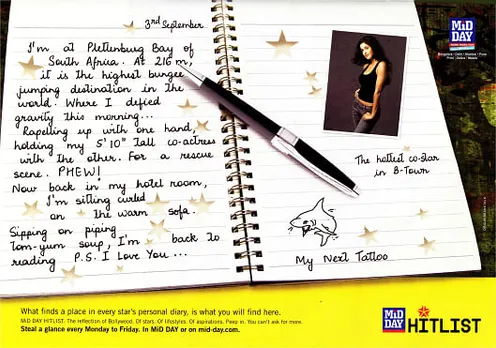 3rd September
I'm at Plettenburg Bay of
South Africa. At 216 m,
it is the highest bungee
jumping destination in the
world. Where I defied
gravity this morning...
Rapelling up with one hand,
holding my 5'10" tall co-actress
with the other. For a rescue
scene. PHEW!
Now back in my hotel room,
I'm sitting curled
on the warm sofa.
Sipping on piping
tom-yum soup, I'm back to
reading P.S. I Love You ...
MiD
DAY
The hottest co-star
in B-Town
My Next Tattoo
What finds a place in every star's personal diary, is what you will find here.
MiD DAY HITLIST. The reflection of Bollywood. Of stars. Of lifestyles. Of aspirations. Peep in. You can't ask for more.
Steal a glance every Monday to Friday. In MiD DAY or on mid-day.com.
MiD
DAY
HITLIST